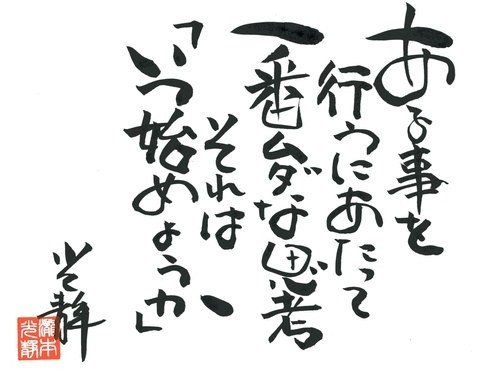 ある事を
行うにあたって
一番ムダな思考
それは、
「いつ始めようか」
光静
瀧本
光静